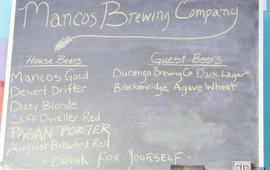 Mancos Brewing Company
House Beers
Mancos Gold
Desert Drifter
Dizzy Blonde
Cliff Dweller Red
PAGAN PORTER
August Brewted Red
Guest Beers
Durango Brewing Co. Dark Lager
Breckenridge Agave Wheat
- DRINK FOR YOURSELF -